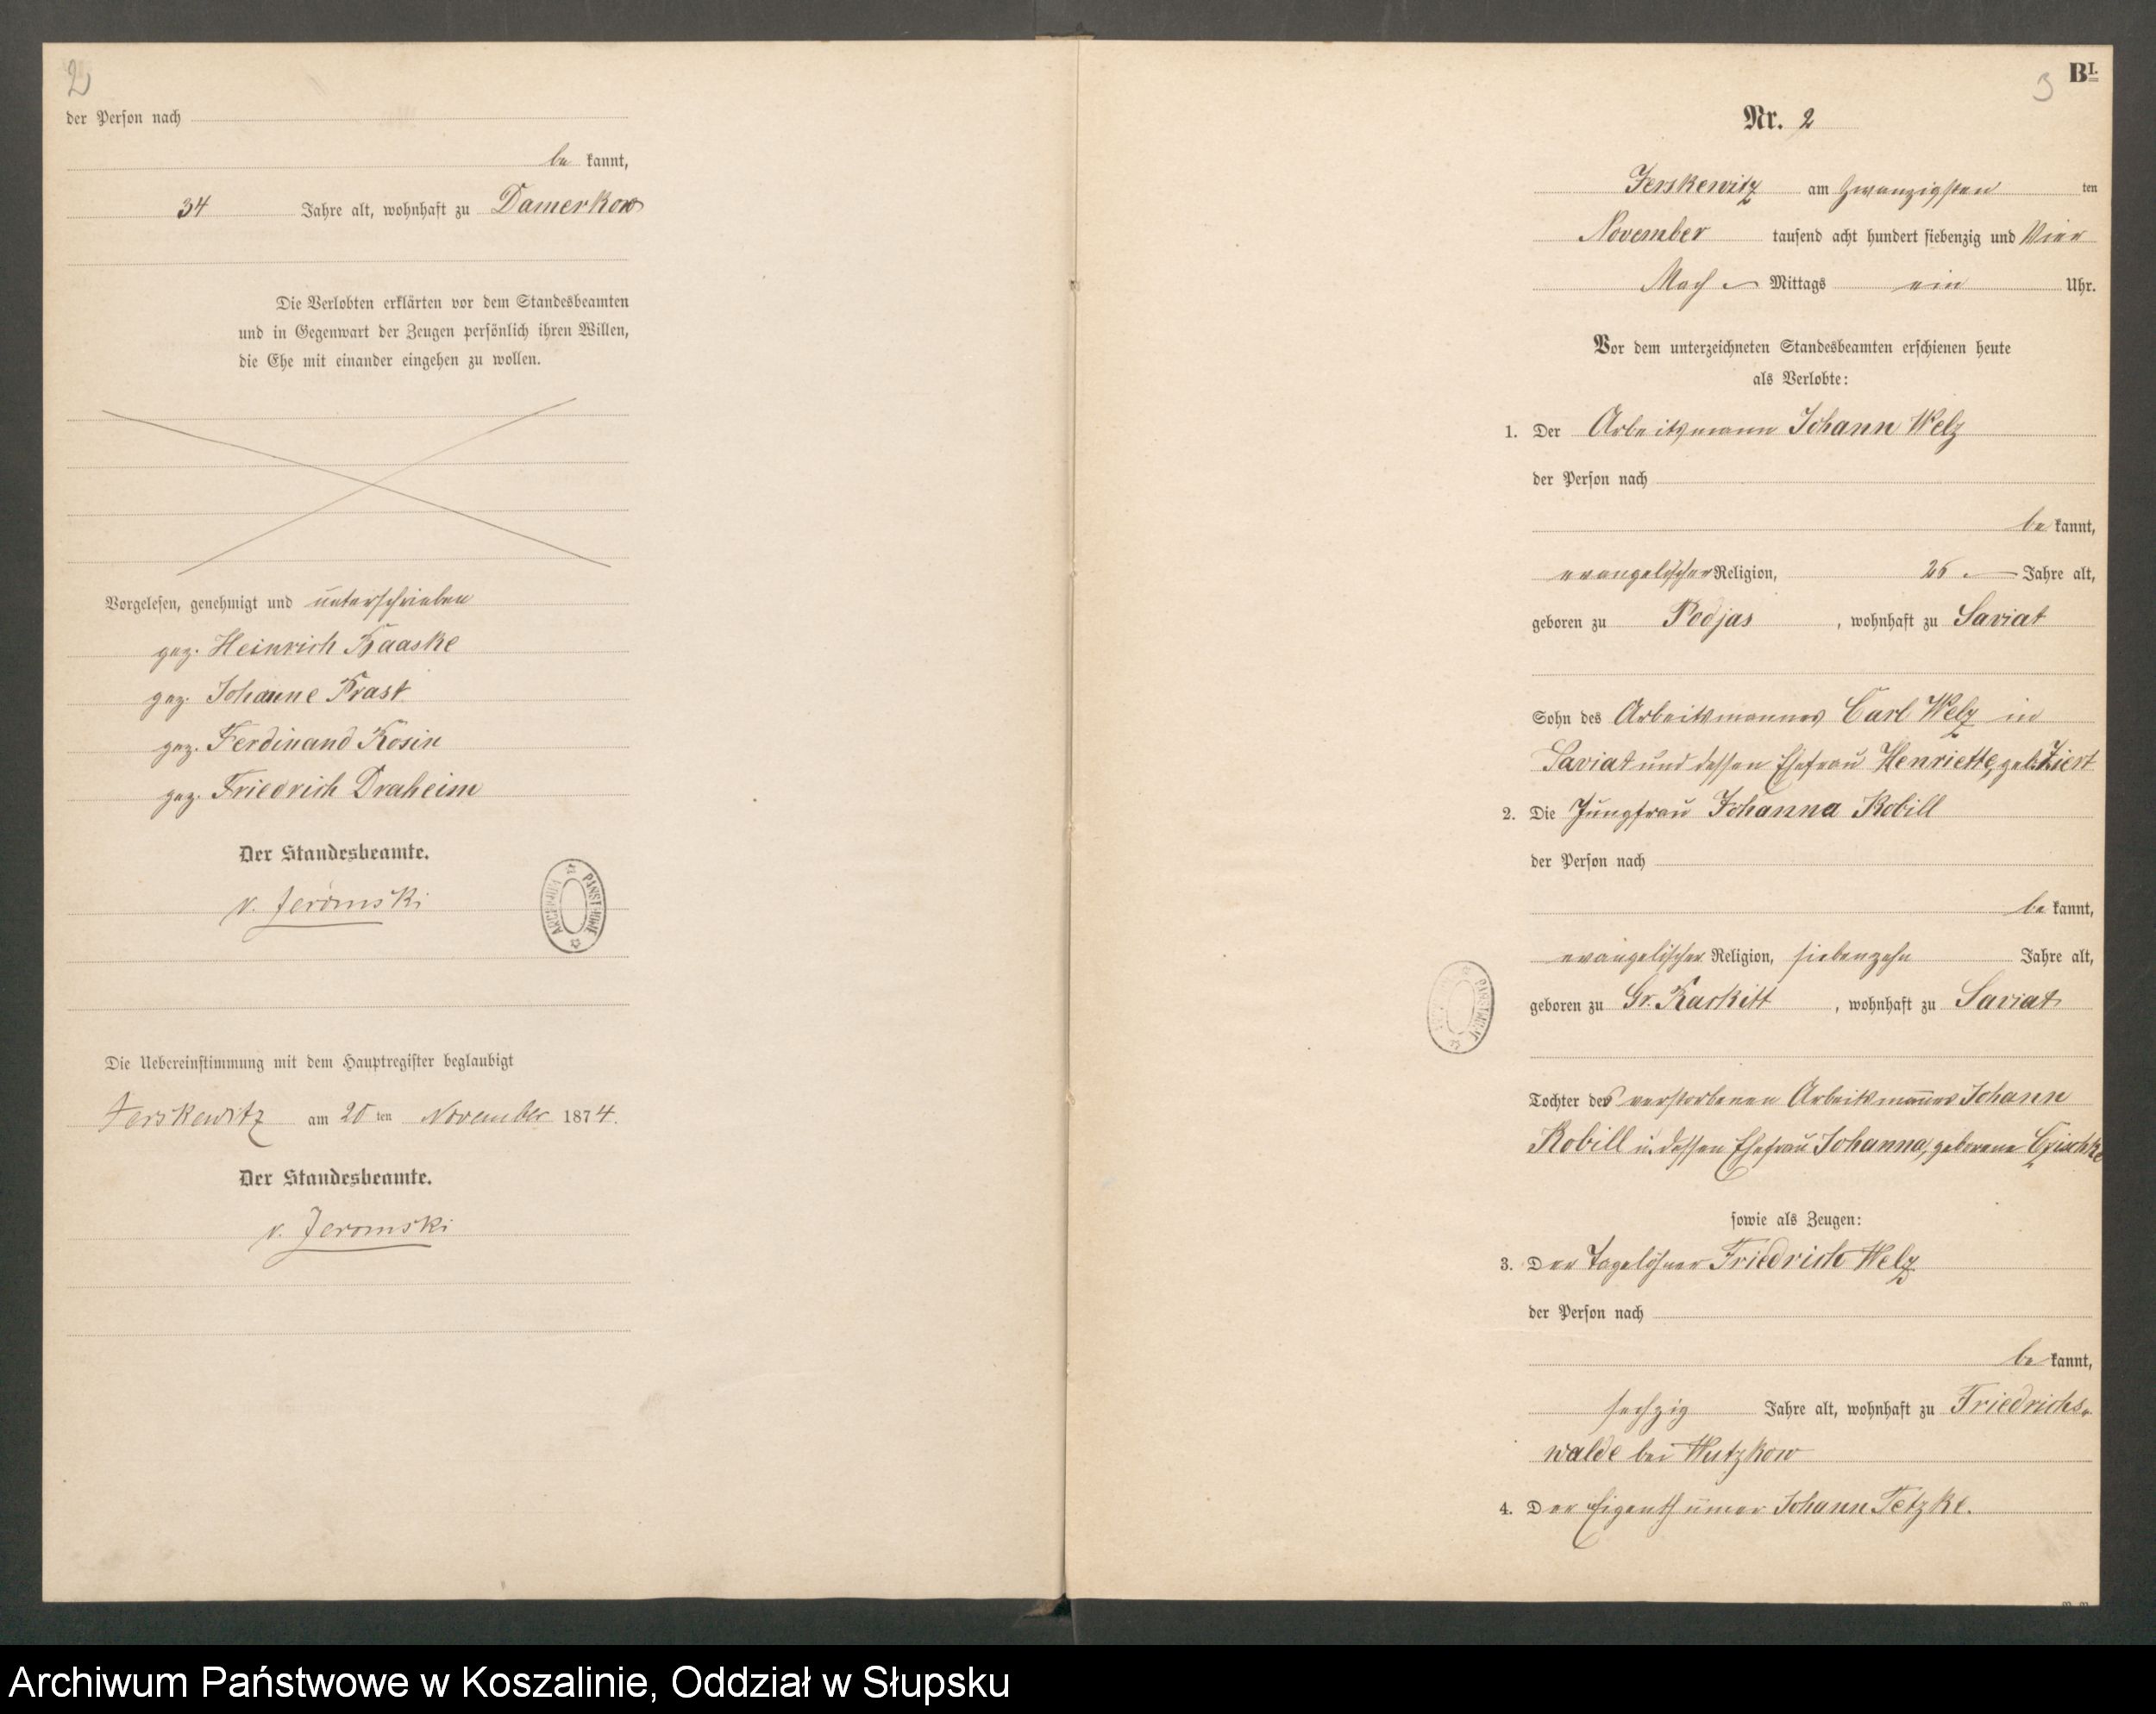 2
der Person nach
be kannt,
34 Jahre alt, wohnhaft zu Damerkow
Die Verlobten erklärten vor dem Standesbeamten
und in Gegenwart der Zeugen persönlich ihren Willen,
die Ehe mit einander eingehen zu wollen.
Vorgelesen, genehmigt und unterschrieben
gez. Heinrich Kaaske
gez. Johanne Prast
gez. Ferdinand Kosin
gez. Friedrich Draheim
Der Standesbeamte.
v. Jeromski
Die Uebereinstimmung mit dem Hauptregister beglaubigt
Jerskewitz am 20 ten November 1874.
Der Standesbeamte.
v. Jeromski
3
B I.
Nr. 2
Jerskewitz am zwanzigsten ten
November tausend acht hundert siebenzig und Vier
Nach Mittags ein Uhr.
Vor dem unterzeichneten Standesbeamten erschienen heute
als Verlobte:
1. Der Arbeitsmann Johann Welz
der Person nach
be kannt,
evangelischer Religion, 26 Jahre alt,
geboren zu Podjas, wohnhaft zu Saviat
Sohn des Arbeitsmannes Carl Welz in
Saviat und dessen Ehefrau Henriette, geb.
2. Die Jungfrau Johanna Kobill
der Person nach
be kannt,
evangelischer Religion, siebenzehn Jahre alt,
geboren zu Gr. , wohnhaft zu Saviat
Tochter des verstorbenen Arbeitsmannes Johann
Kobill u. dessen Ehefrau Johanna, geborene
sowie als Zeugen:
3. Der Tagelöhner Friedrich Welz
der Person nach
be kannt,
sechzig Jahre alt, wohnhaft zu Friedrichs-
walde bei Wutzkow
4. Der Eigenthümer Johann Tetzke.
Archiwum Państwowe w Koszalinie, Oddział w Słupsku